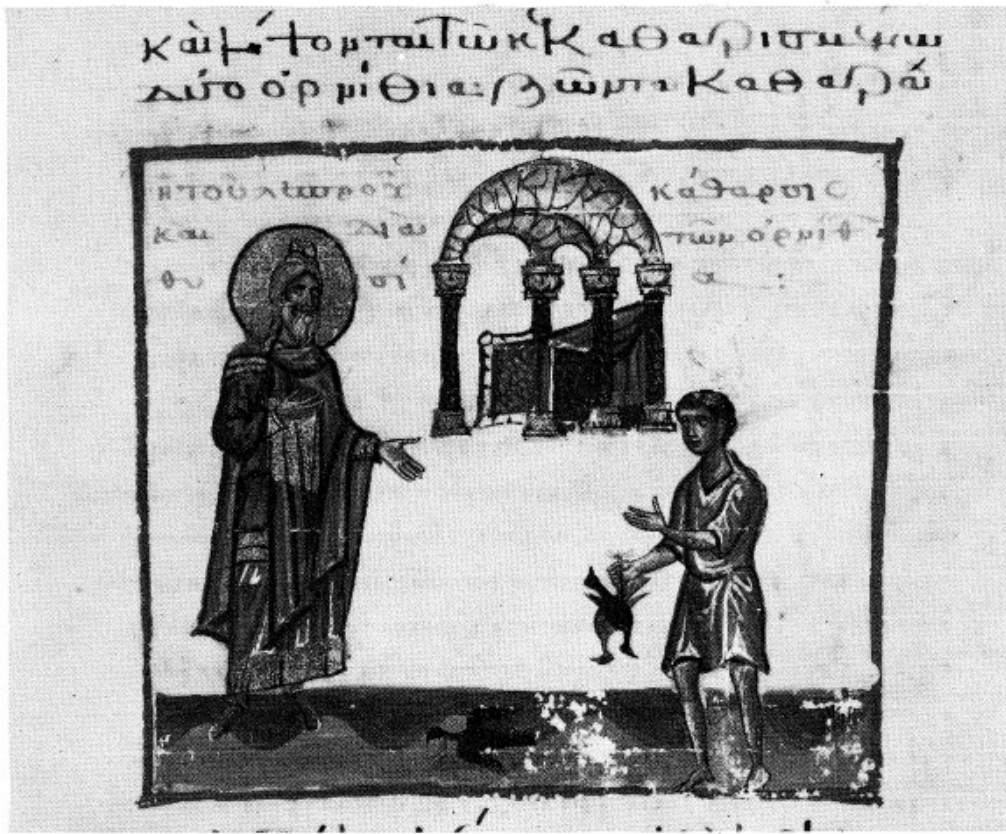 καὶ λήψονται τῶ κεκαθαρισμένω
δύο ὀρνίθια ζῶντα καθαρά
ἡ τοῦ λεπροῦ κάθαρσις
καὶ διὰ τῶν ὀρνίθ
θυ σί α: